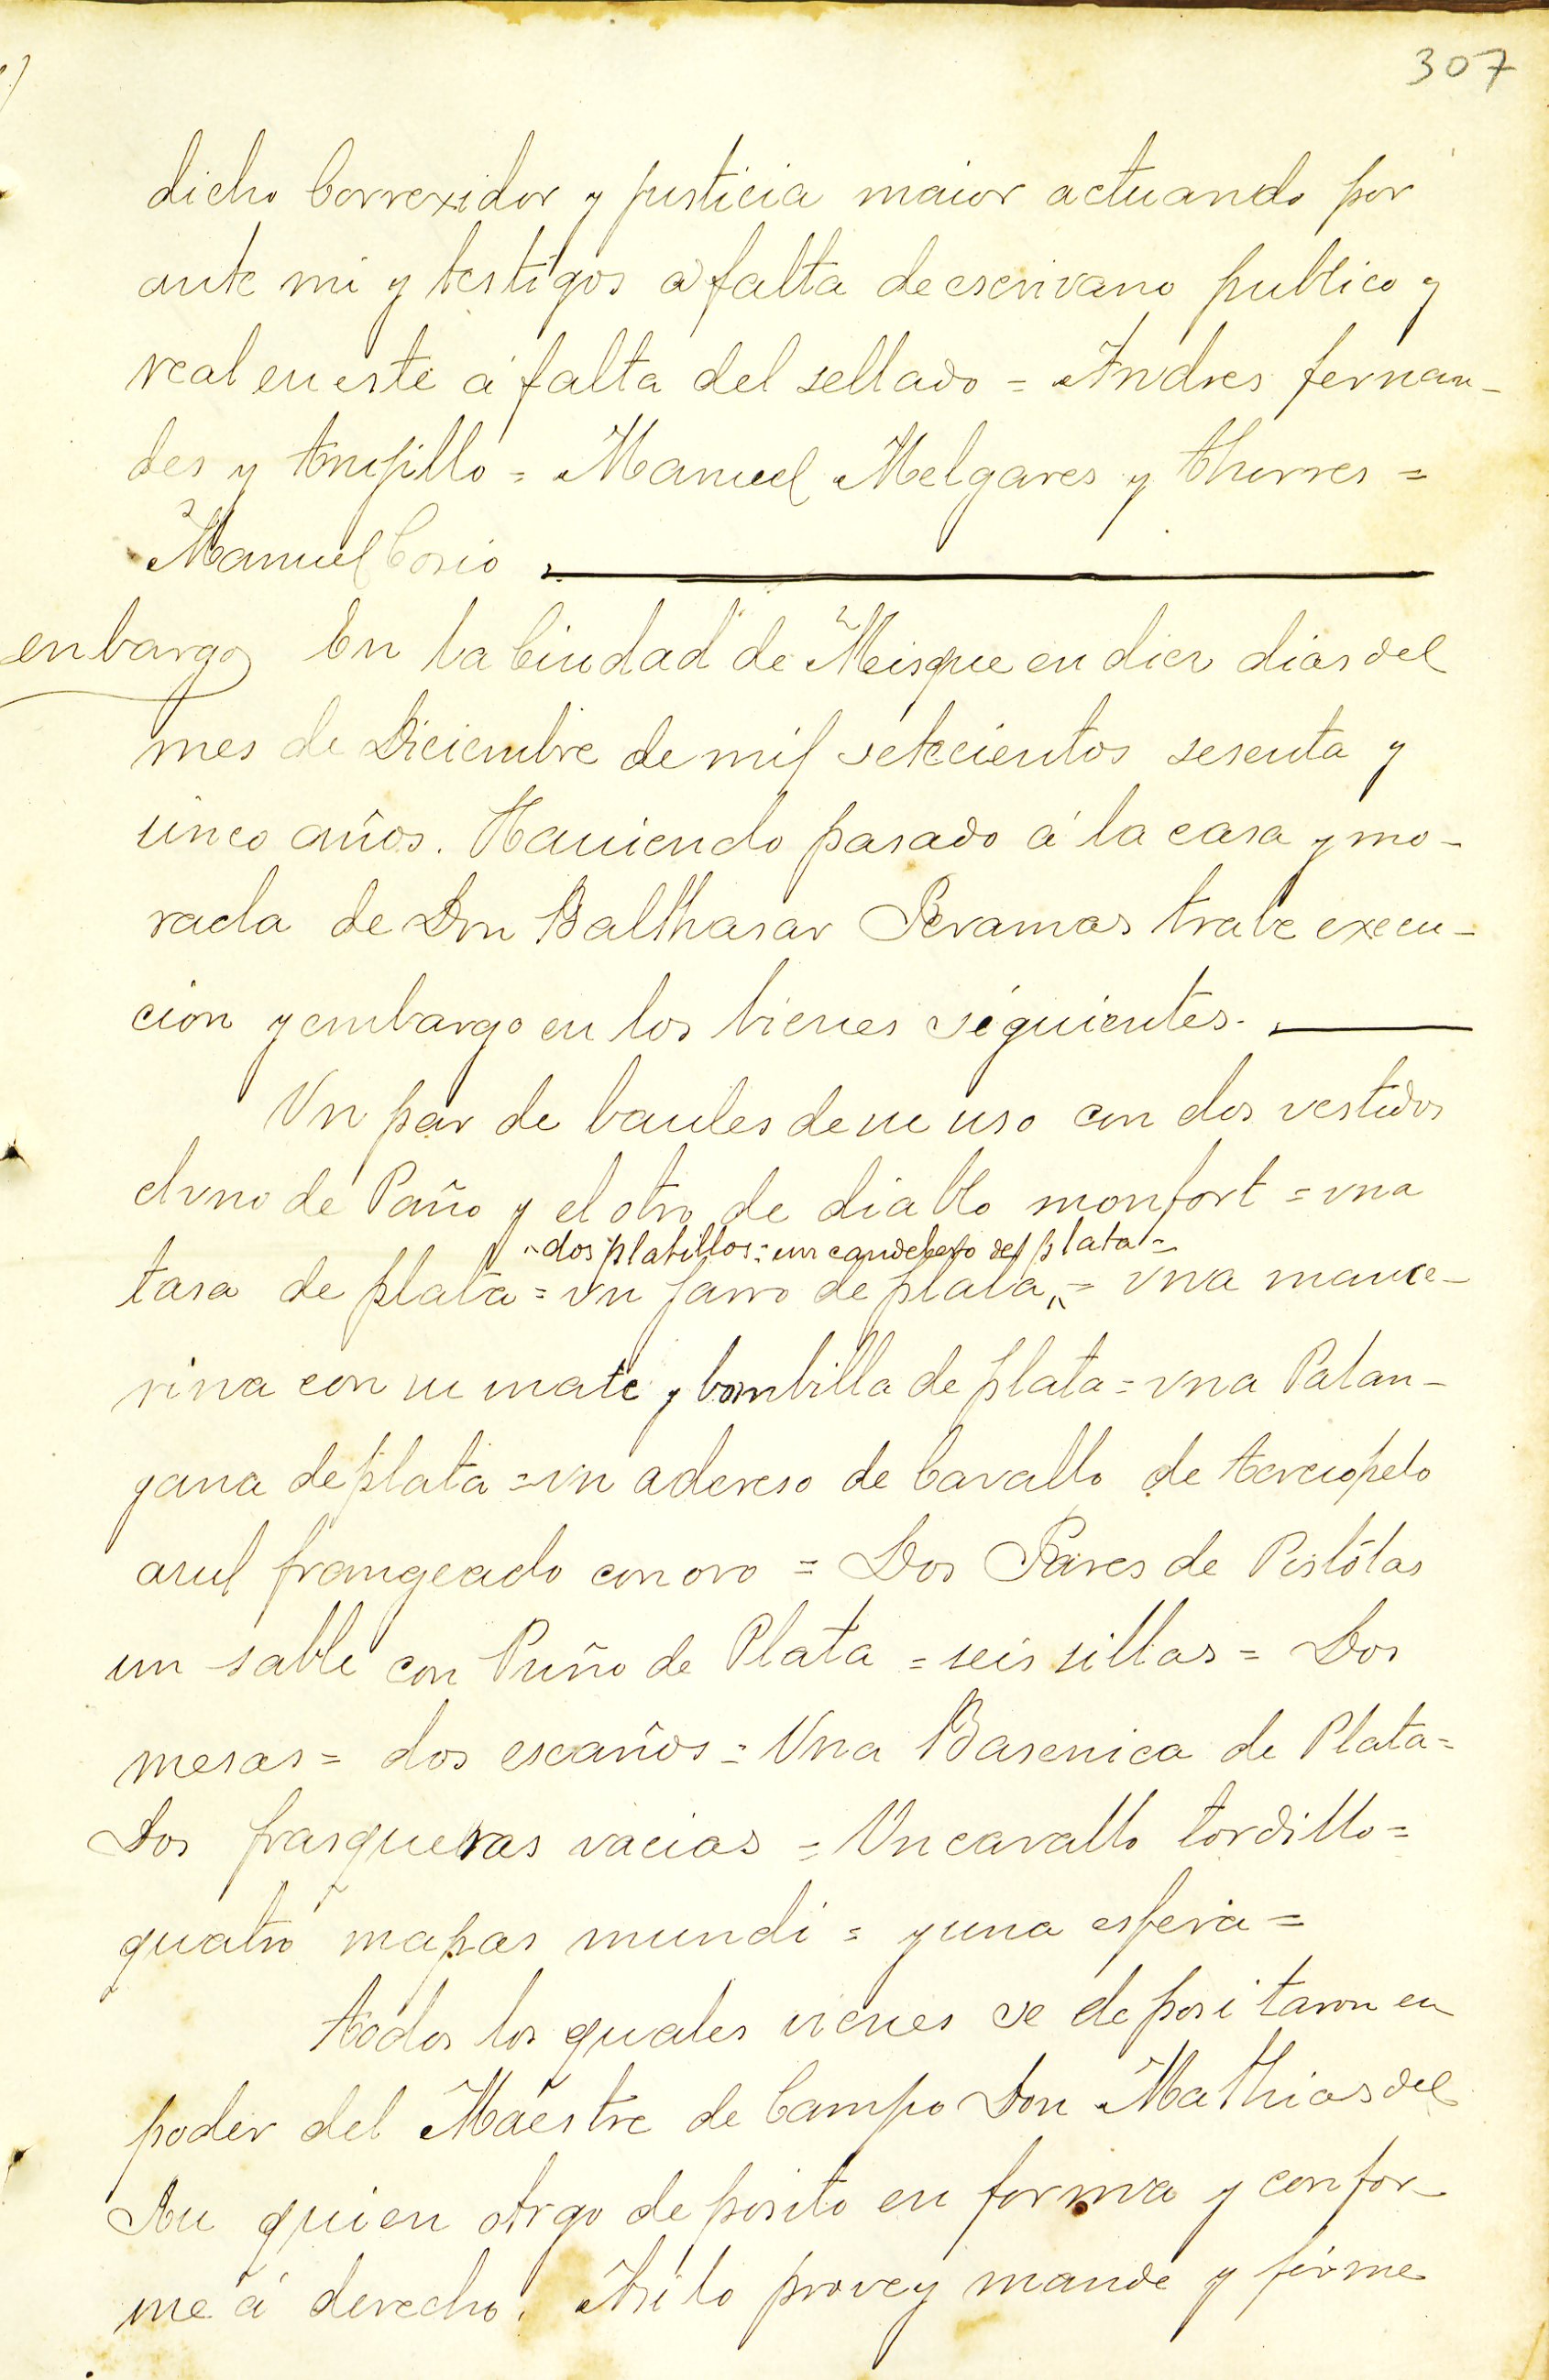 307
dicho Correxidor y justicia maior actuando por
ante mi y testigos a falta de escrivano publico y
real en este á falta del sellado = Andres fernan-
des y trujillo = Manuel Melgares y thorres =
Manuel Cosio
enbargo En la Ciudad de Misque en dies dias del
mes de Diciembre de mil setecientos sesenta y
cinco años. Hauiendo pasado á la casa y mo-
rada de Don Balthasar Peramas trabe execu-
cion y embargo en los bienes siguientes.
Vn par de baules de su uso con dos vestidos
el vno de Paño y el otro de diablo monfort = vna
"dos platillos = un candelero de plata =
tasa de plata = vn jarro de plata " = vna mance-
rina con su mate y bombilla de plata = vna Palan-
gana de plata = vn adereso de Cavallo de terciopelo
asul frangeado con oro = Dos Pares de Pistólas
un sable con Puño de Plata = seis sillas = Dos
mesas = dos escaños = Vna Basenica de Plata =
Dos frasqueras vacias = Vn cavallo tordillo =
quatro mapas mundi = y una esfera =
todos los quales vienes se depositaron en
poder del Maestre de Campo Don Mathias del
Au quien otrgo deposito en forma y confor-
me á derecho. Asi lo provey mande y firme